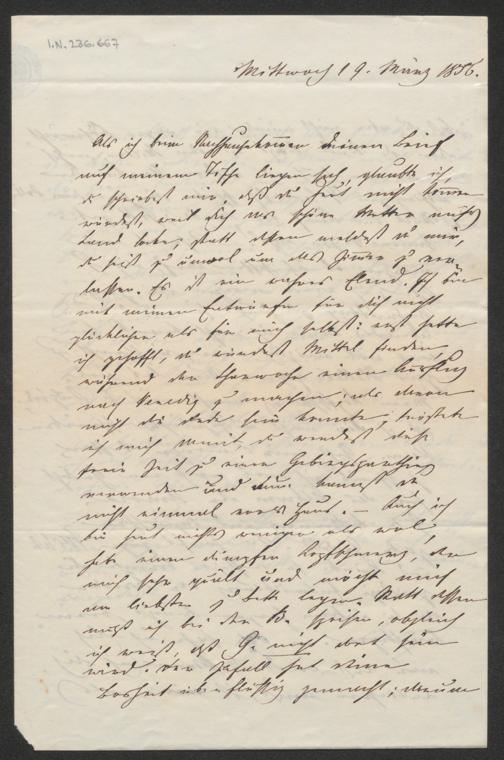 I.N. 236.667
Mittwoch 19. März 1856.
Als ich beim Nachhausekommen deinen Brief
auf meinem Tische liegen sah, glaubte ich,
du schreibest mir, daß du heut nicht kommen
würdest, weil dich das schöne Wetter aufs
Land locke; statt dessen meldest du mir,
du seist zu unwol um das Zimmer zu ver-
lassen. Es ist ein wahres Elend. Ich bin
mit meinen Entwürfen für dich nicht
glücklicher als für mich selbst: erst hatte
ich gehofft, du würdest Mittel finden
während der Charwoche einen Ausflug
nach Venedig zu machen; als davon
nicht die Rede sein konnte, tröstete
ich mich damit, du werdest diese
freie Zeit zu einer Gebirgsparthie
verwenden und nun kannst du
nicht einmal vors Haus. — Auch ich
bin heut nichts weniger als wol,
habe einen dumpfen Kopfschmerz, der
mich sehr quält und möchte mich
am liebsten zu Bette legen. Statt dessen
muß ich bei den B. speisen, obgleich
ich weiß, daß G. nicht dort sein
wird. Der Zufall hat deine
Bosheit überflüssig gemacht; darum